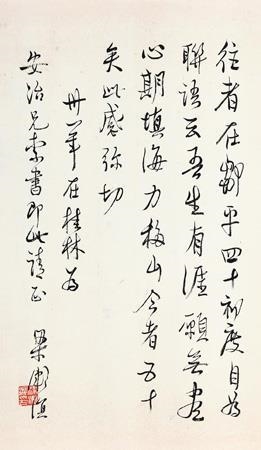 往者在鄒平四十初度自為
聯語云吾生有涯願無盡
心期填海力移山今者五十
矣此感弥切
卅一年在桂林為
安治兄索書即此請正
梁漱溟